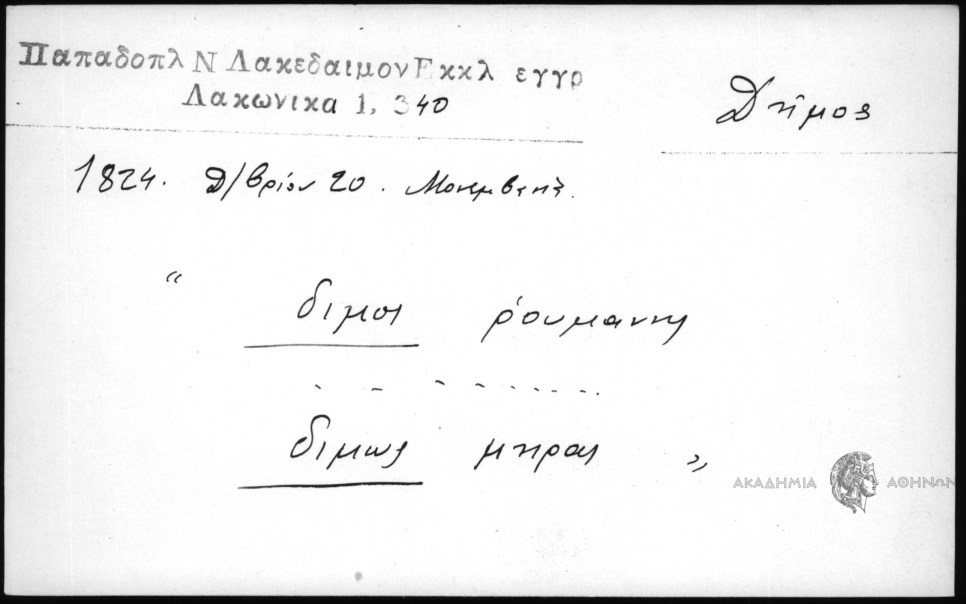 Παπαδοπλ Ν Λακεδαιμον Εκκλ εγγρ
Λακωνικα 1, 340
Δῆμος
1824. Δ/βρίου 20.
“ διμος ρουμανης
διμως μπρας ”
ΑΚΑΔΗΜΙΑ ΑΘΗΝΩΝ